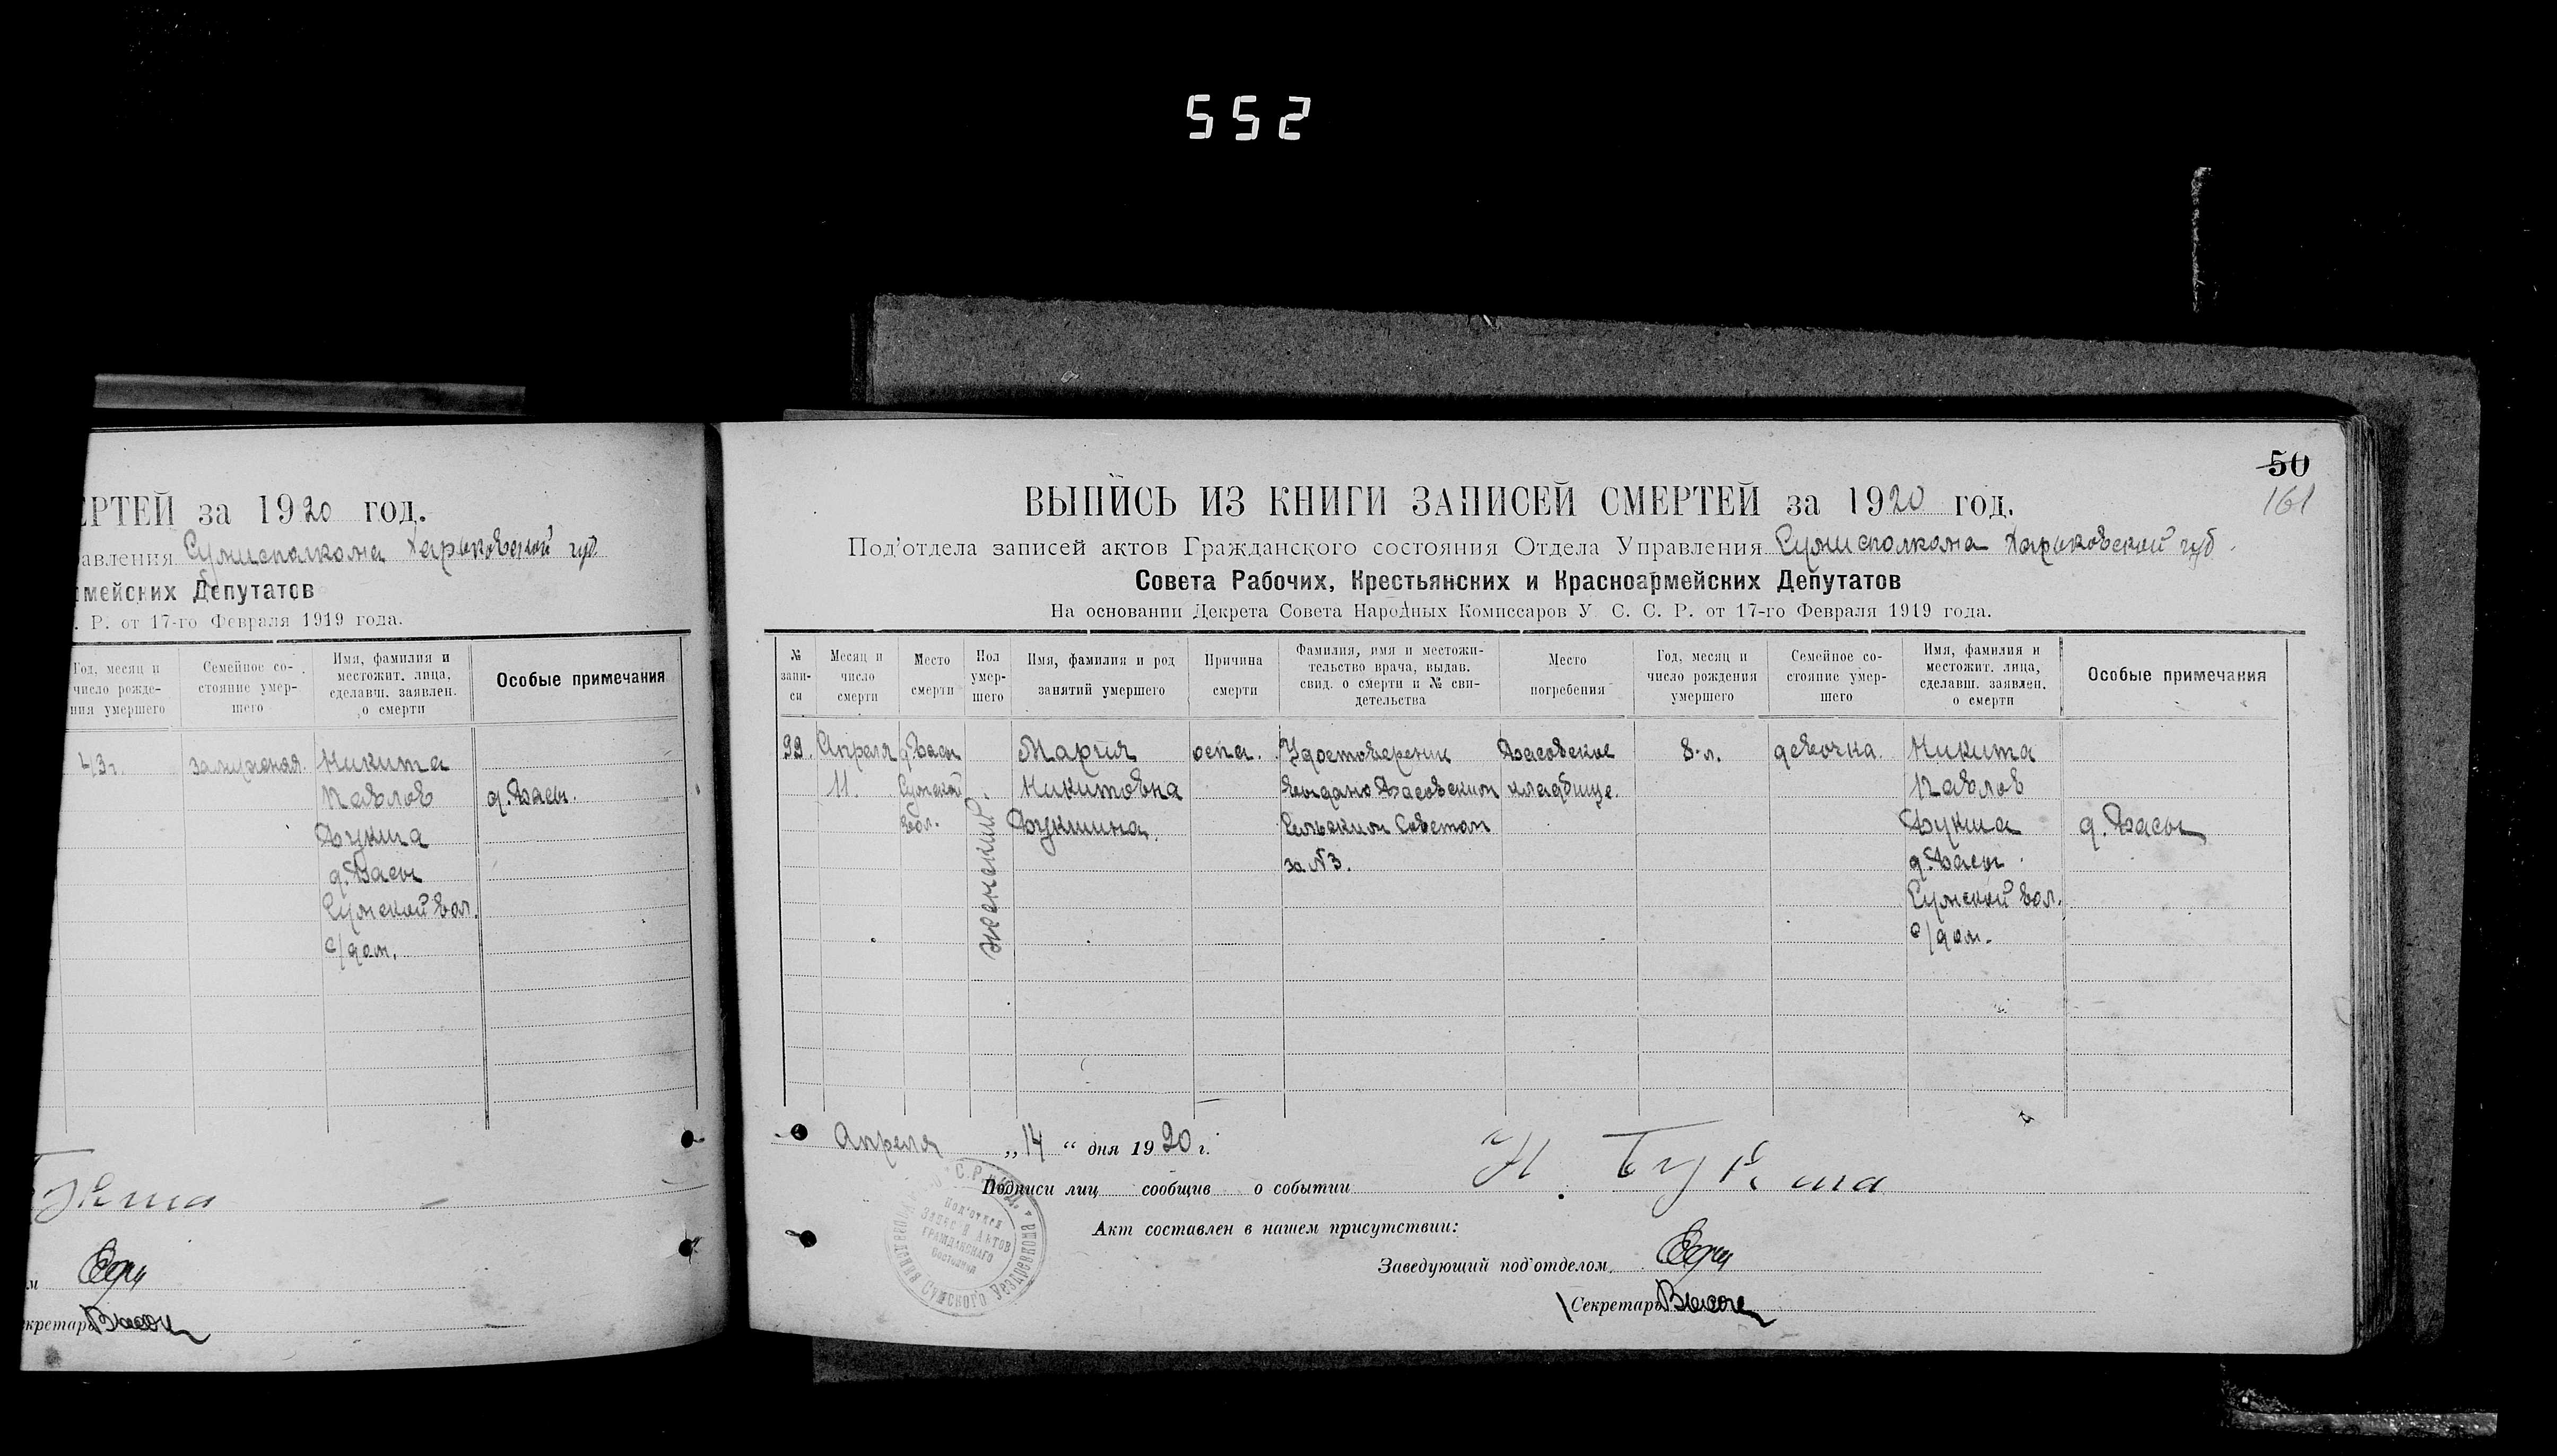 552
ЕРТЕЙ за 1920 год.
авления Сумисполкома Харьковской губ
мейских Депутатов
. Р. от 17-го Февраля 1919 года.
Год, месяц и
число рожде-
ния умершего
Семейное со-
стояние умер-
шего
Имя, фамилия и
местожит. лица,
сделавш. заявлен.
о смерти
Особые примечания
43 г.
замужняя.
Никита
Павлов
Букша
д. Басы
Сумской вол.
с/дом.
д. Басы.
кретарь
50
161
ВЫПИСЬ ИЗ КНИГИ ЗАПИСЕЙ СМЕРТЕЙ за 1920 год.
Под'отдела записей актов Гражданского состояния Отдела Управления Сумисполкома Харьковской губ.
Совета Рабочих, Крестьянских и Красноармейских Депутатов
На основании Декрета Совета Народных Комиссаров У. С. С. Р. от 17-го Февраля 1919 года.
№
запи-
си
Месяц и
число
смерти
Место
смерти
Пол
умер-
шего
Имя, фамилия и род
занятий умершего
Причина
смерти
Фамилия, имя и местожи-
тельство врача, выдав.
свид. о смерти и № сви-
детельства
Место
погребения
Год, месяц и
число рождения
умершего
Семейное со-
стояние умер-
шего
Имя, фамилия и
местожит. лица,
сделавш. заявлен.
о смерти
Особые примечания
99.
Апреля
11.
д. Басы
Сумской
вол.
женский.
Мария
Никитовна
Букшина.
оспа.
Удостоверение
выдано Басовским
Сельским Советом
за № 3.
Басовское
кладбище.
8 л.
девочка.
Никита
Павлов
Букша
д. Басы.
Сумской вол.
с/дом.
д. Басы
Апреля „14“ дня 1920 г.
Подписи лиц сообщив о событии Н. Букша
Акт составлен в нашем присутствии:
Заведующий под'отделом
Секретарь
Под'отдел
Записи Актов
ГРАЖДАНСКАГО
Состояния
Сумского Уездревкома